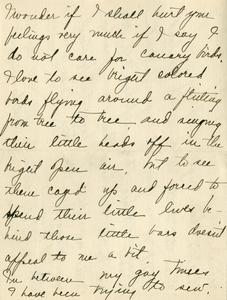 I wonder if I shall hurt your
feelings very much if I say I
do not care for canary birds.
I love to see bright colored
birds flying around a flitting
from tree to tree and singing
their little heads off in the
bright open air, but to see
them caged up and forced to
spend their little lives be-
hind those little bars doesn't
appeal to me a bit.
In between my gay times
I have been trying to sew.